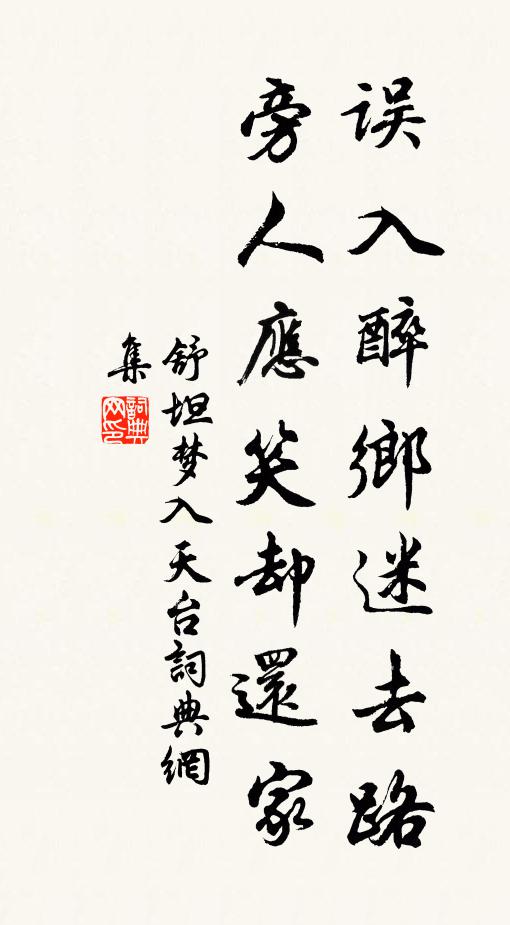 误入醉鄉迷去路
旁人應笑却還家
舒坦梦入天台詞典網
集
詞典
网印